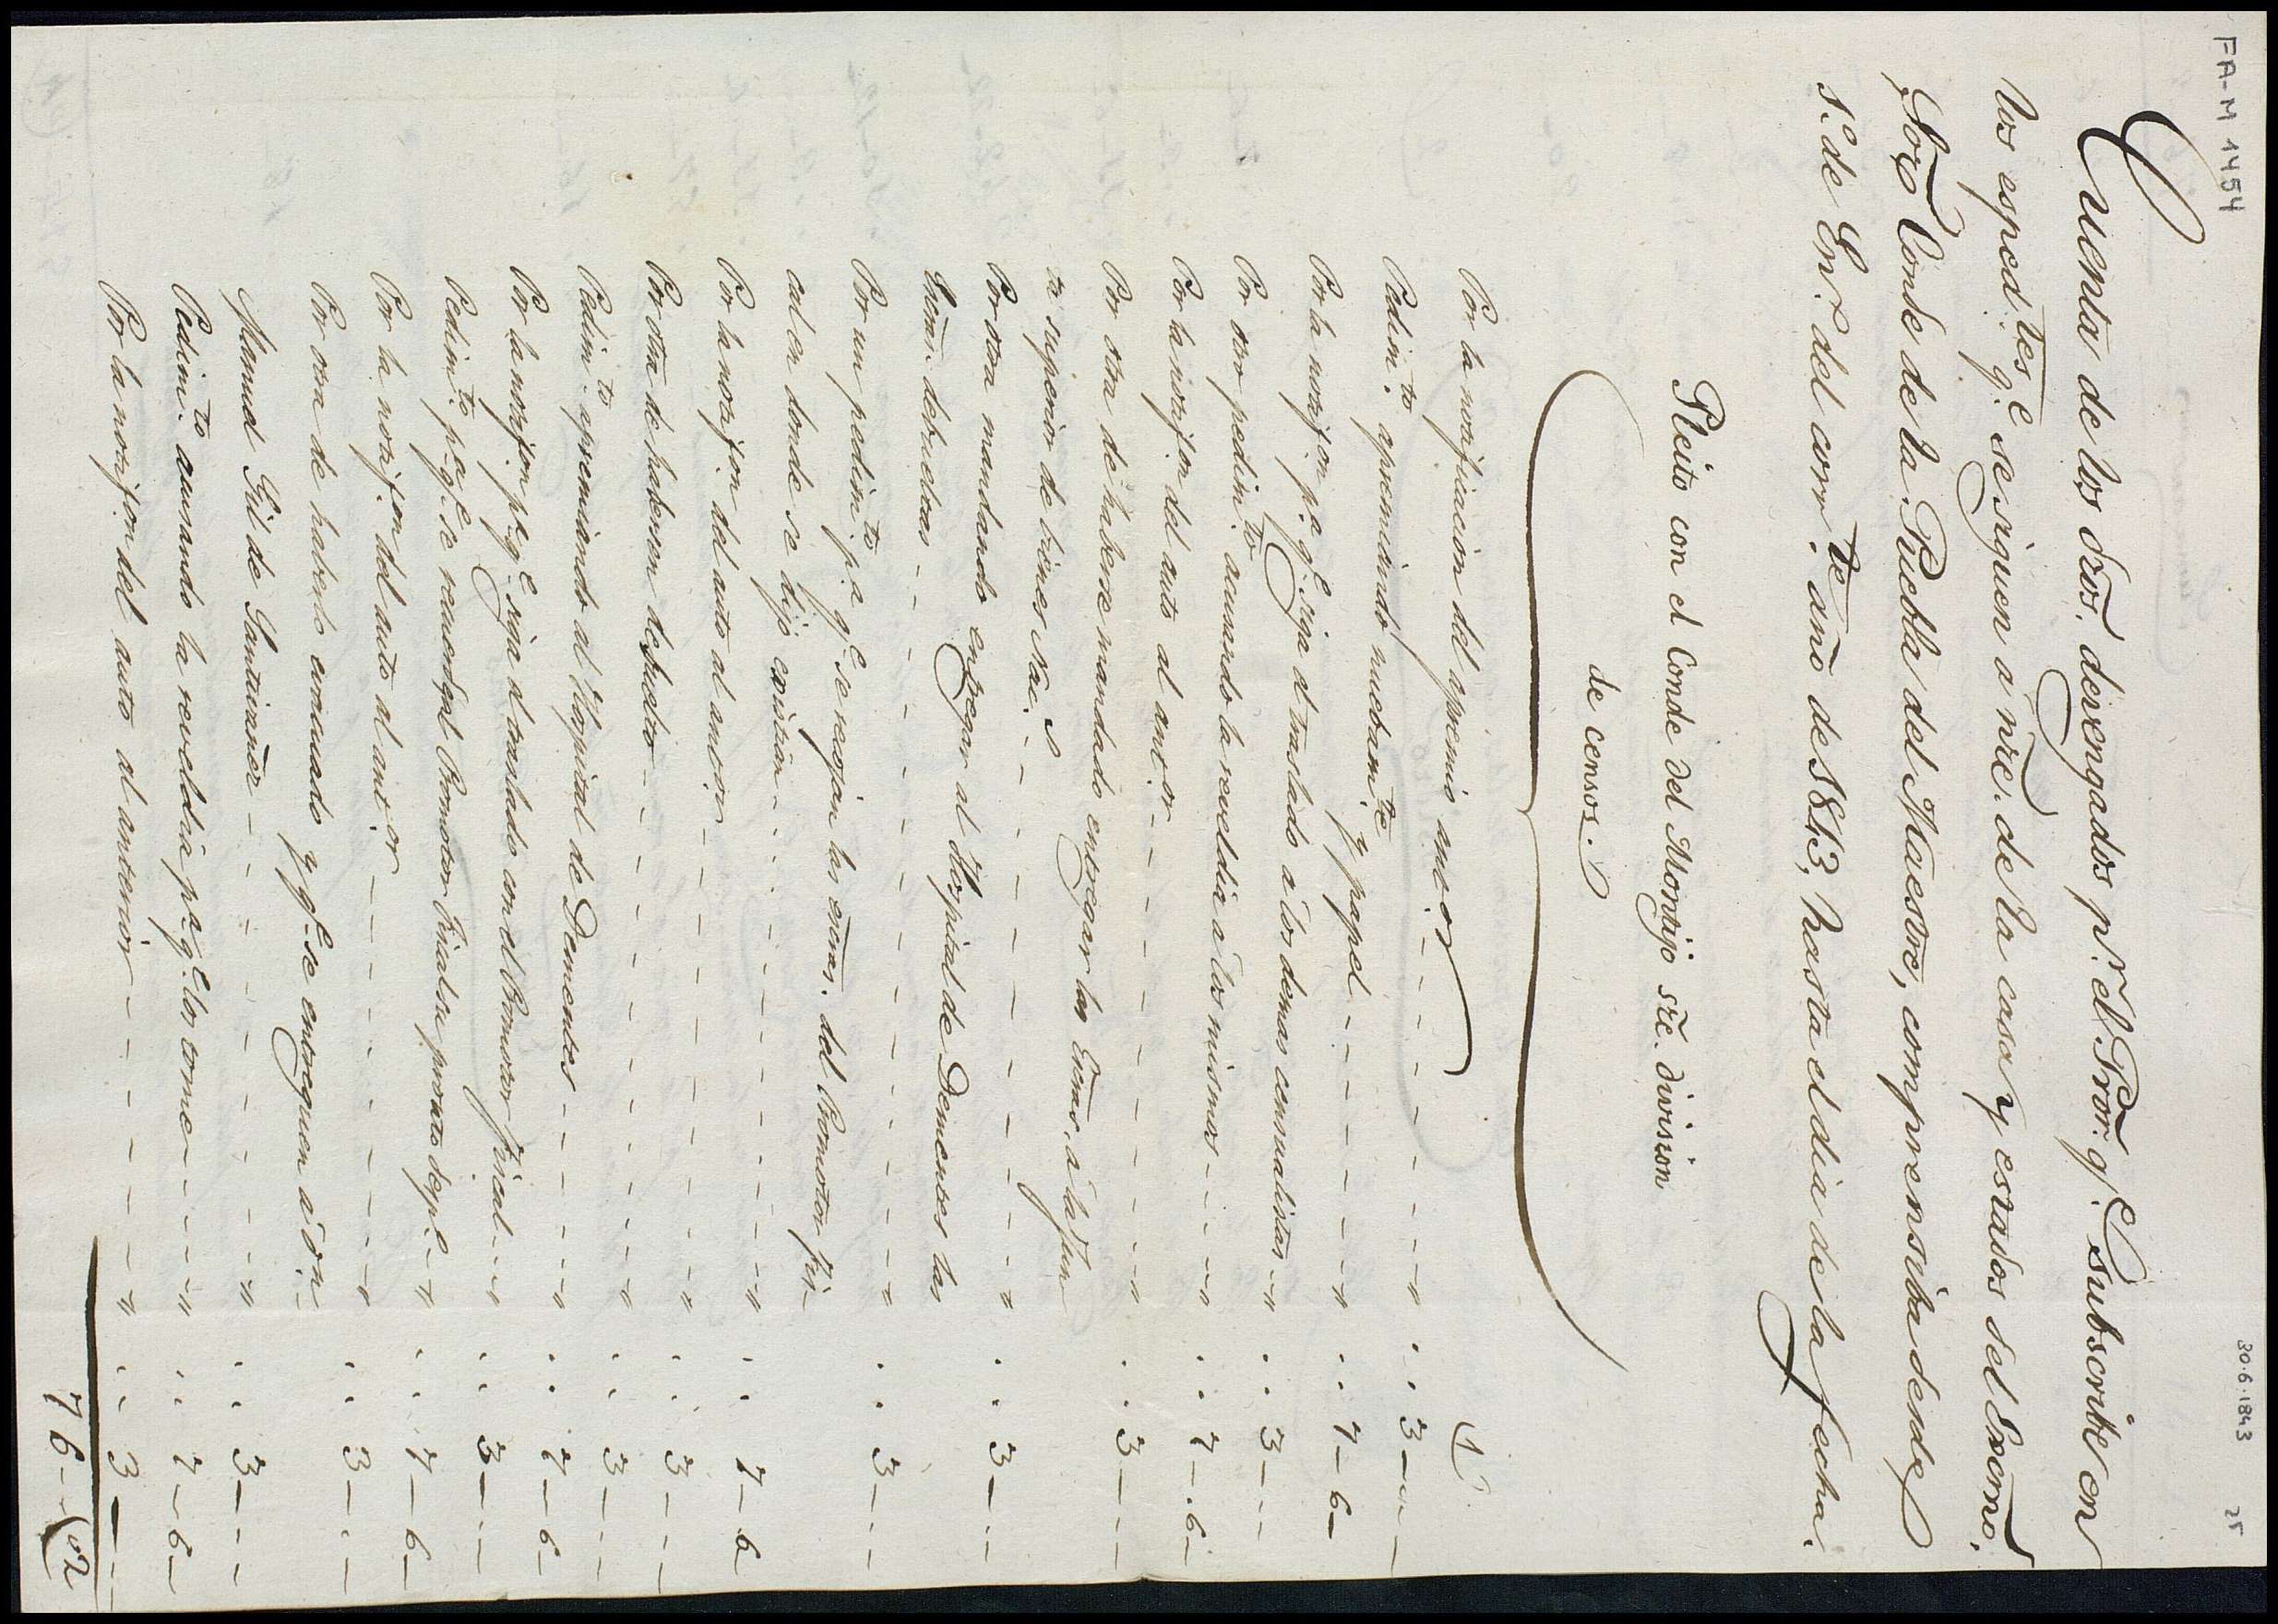 FA-M 1454
30.6.1843
25
Cuenta de los dros. devengados pr. el Pror. qe. subscribe en
los esped.tes qe. se siguen a nre. de la casa y estados del Exmo.
Sor. Conde de la Puebla del Maestre, comprensiba desde
1.º de En.º del corr.te año de 1843, hasta el dia de la fecha.
Pleito con el Conde del Montijo sre. division
de censos.
Por la notificacion del apremio ant.or - - - - - " . . 3 - - -
Pedim.to apremiando nuebam.te y papel - - - - - " . . 7 - 6 -
Por la notif.on p.a q.e siga el traslado a los demas censualistas - - " . . 3 - - -
Por otro pedim.to acusando la reveldia a los mismos - - - - " . . 7 - 6 -
Por la notif.on del auto al ant.or - - - - - - " . . 3 - - -
Por otra de haberse mandado entregar los autos a la Jun
ta superior de bienes Nac.s - - - - - - " . . 3 - - -
Por otra mandando entregar al Hospital de Dementes las
debueltas - - - - - - - " . . 3 - - -
Por un pedim.to p.a q.e se recojan los del Promotor fis-
cal en donde se dijo - - - - - " . . 7 - 6
Por la notif.on del auto al anter.or - - - - - - " . . 3 - - -
Por otra de haberse debuelto - - - - - - " . . 3 - - -
Pedim.to apremiando al Hospital de Dementes - - - - " . . 7 - 6 -
Por la notif.on p.a q.e siga el traslado con el Promotor fiscal - - " . . 3 - - -
Pedim.to p.a q.e se recuerde al Promotor Fiscal su pronto desp.o - " . . 7 - 6 -
Por la notif.on del auto al ant.or - - - - - " . . 3 - - -
Por otra de haberlo evacuado y q.e se entreguen a D.n
Manuel Gil de Santibañez - - - - - - " . . 3 - - -
Pedim.to acusando la reveldia p.a q.e los tome - - - - " . . 7 - 6 -
Por la notif.on del auto al anterior - - - - - " . . 3 - - -
76 - 02